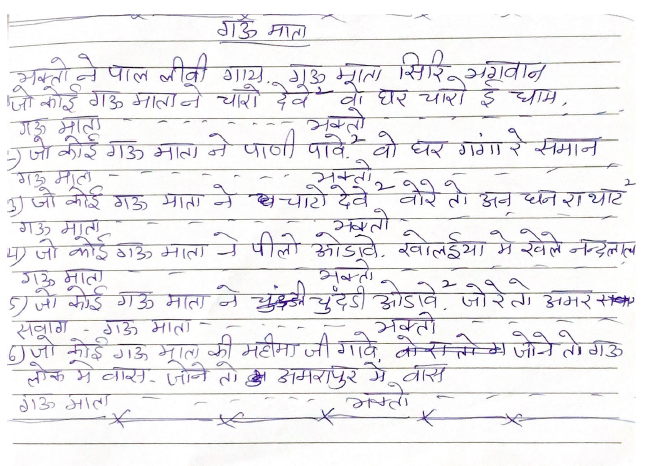 गऊ माता
भक्तो ने पाल लीवी गाय. गऊ माता सिरि भगवान
जो कोई गऊ माता ने चारो देवे² वो घर चारो ई धाम.
गऊ माता - - - - - - - - भक्तो
2) जो कोई गऊ माता ने पाणी पावे.² वो घर गंगा रे समान
गऊ माता - - - - - - - - भक्तो - - - -
3) जो कोई गऊ माता ने चाटो देवे² वोरे तो अन धन रा थाट²
गऊ माता - - - - - - - - भक्तो - - - -
4) जो कोई गऊ माता ने पीलो ओडावे. खोलईया मे खेले नन्दलाल
गऊ माता - - - - - - - - भक्तो - - - -
5) जो कोई गऊ माता ने चुंदडी ओडावे.² जोरे तो अमर
सवाग - गऊ माता - - - - - - - - भक्तो
6) जो कोई गऊ माता की महीमा जी गावे. जोने तो गऊ
लोक मे वास - जोने तो अमरापुर मे वास
गऊ माता - - - - - - - - भक्तो